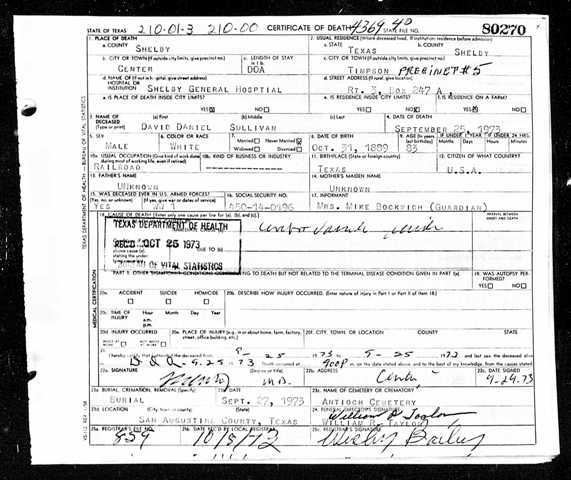 STATE OF TEXAS 210-01-3 210-00 CERTIFICATE OF DEATH STATE FILE NO. 80270
1. PLACE OF DEATH
a. COUNTY
SHELBY
2. USUAL RESIDENCE (Where deceased lived. If institution: residence before admission)
a. STATE b. COUNTY
TEXAS SHELBY
b. CITY OR TOWN (If outside city limits, give precinct no.) c. LENGTH OF STAY
CENTER DOA
c. CITY OR TOWN (If outside city limits, give precinct no.)
TIMPSON PRECINCT #5
d. NAME OF (If not in hospital, give street address)
HOSPITAL OR
INSTITUTION SHELBY GENERAL HOSPTIAL
d. STREET ADDRESS
RT. 3, BOX 247 A
e. IS PLACE OF DEATH INSIDE CITY LIMITS?
YES NO
e. IS RESIDENCE INSIDE CITY LIMITS? f. IS RESIDENCE ON A FARM?
YES NO YES NO
3. NAME OF DECEASED (a) First (b) Middle (c) Last 4. DATE OF DEATH
(Type or print) DAVID DANIEL SULLIVAN SEPTEMBER 25, 1973
5. SEX 6. COLOR OR RACE 7. Married Never Married 8. DATE OF BIRTH 9. AGE (In years last birthday) IF UNDER 1 YEAR IF UNDER 24 HRS.
MALE WHITE Widowed Divorced OCT. 31, 1889 83
10a. USUAL OCCUPATION (Give kind of work done during most of working life, even if retired) 10b. KIND OF BUSINESS OR INDUSTRY 11. BIRTHPLACE (State or foreign country) 12. CITIZEN OF WHAT COUNTRY?
RAILROAD TEXAS U.S.A.
13. FATHER'S NAME 14. MOTHER'S MAIDEN NAME
UNKNOWN UNKNOWN
15. WAS DECEASED EVER IN U.S. ARMED FORCES? 16. SOCIAL SECURITY NO. 17. INFORMANT
(Yes, no, or unknown) (If yes, give war or dates of service)
YES 450-14-0196 MRS. MIKE BOCKWICH (GUARDIAN)
18. CAUSE OF DEATH (Enter only one cause per line for (a), (b), and (c).) INTERVAL BETWEEN ONSET AND DEATH
TEXAS DEPARTMENT OF HEALTH
REC'D OCT 25 1973
BUREAU OF VITAL STATISTICS
DUE TO
PART II. OTHER SIGNIFICANT CONDITIONS CONTRIBUTING TO DEATH BUT NOT RELATED TO THE TERMINAL DISEASE CONDITION GIVEN IN PART I(a) 19. WAS AUTOPSY PERFORMED?
YES NO
MEDICAL CERTIFICATION
20a. ACCIDENT SUICIDE HOMICIDE 20b. DESCRIBE HOW INJURY OCCURRED. (Enter nature of injury in Part I or Part II of item 18.)
20c. TIME OF INJURY Hour Month Day Year
a.m.
p.m.
20d. INJURY OCCURRED 20e. PLACE OF INJURY (e.g., in or about home, farm, factory, street, office building, etc.) 20f. CITY, TOWN, OR LOCATION COUNTY STATE
22a. SIGNATURE (Degree or title) 22b. ADDRESS 22c. DATE SIGNED
M.D. Center
23a. BURIAL, CREMATION, REMOVAL (Specify) 23b. DATE 23c. NAME OF CEMETERY OR CREMATORY
BURIAL SEPT. 27, 1973 ANTIOCH CEMETERY
23d. LOCATION (City, town, or county) (State) 24. FUNERAL DIRECTOR'S SIGNATURE
SAN AUGUSTINE COUNTY, TEXAS William R Taylor
WILLIAM R. TAYLOR
25a. REGISTRAR'S FILE NO. 25b. DATE REC'D BY LOCAL REGISTRAR 25c. REGISTRAR'S SIGNATURE
859
TEXAS DEPARTMENT OF HEALTH BUREAU OF VITAL STATISTICS